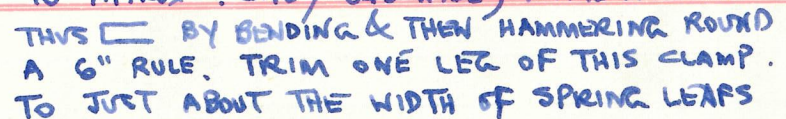 THUS BY BENDING & THEN HAMMERING ROUND
A 6" RULE. TRIM ONE LEG OF THIS CLAMP.
TO JUST ABOUT THE WIDTH OF SPRING LEAFS